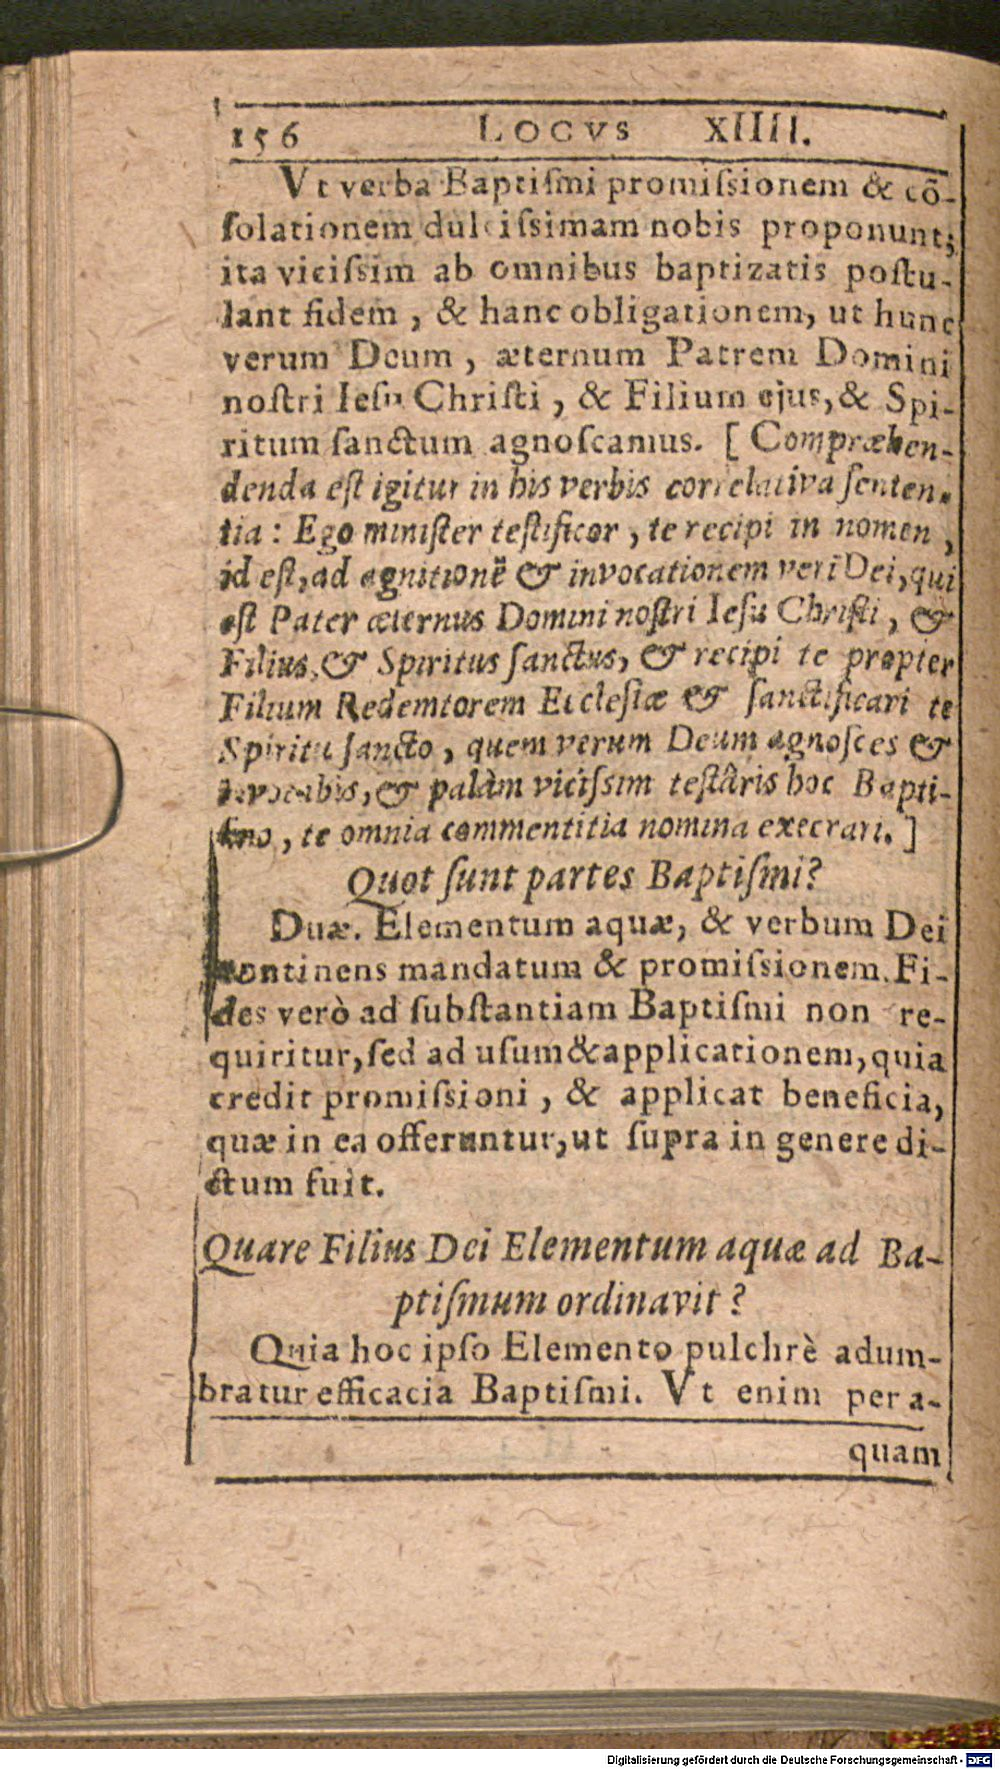 156 LOCVS XIIII.
Vt verba Baptiſmi promiſsionem & cõ-
ſolationem dulciſsimam nobis proponunt;
ita viciſsim ab omnibus baptizatis poſtu-
lant fidem, & hanc obligationem, ut hunc
verum Deum, æternum Patrem Domini
noſtri Ieſu Chriſti, & Filium ejus, & Spi-
ritum ſanctum agnoſcamus. [Compræhen-
denda eſt igitur in his verbis correlativa ſenten-
tia: Ego miniſter teſtificor, te recipi in nomen,
id eſt, ad agnitionẽ & invocationem veri Dei, qui
eſt Pater æternus Domini noſtri Ieſu Chriſti, &
Filius, & Spiritus ſanctus, & recipi te propter
Filium Redemtorem Eccleſiæ & ſanctificari te
Spiritu ſancto, quem verum Deum agnoſces &
invocabis, & palàm viciſsim teſtâris hoc Bapti-
ſmo, te omnia commentitia nomina execrari.]
Quot ſunt partes Baptiſmi?
Duæ. Elementum aquæ, & verbum Dei
continens mandatum & promiſsionem. Fi-
des verò ad ſubſtantiam Baptiſmi non re-
quiritur, ſed ad uſum & applicationem, quia
credit promiſsioni, & applicat beneficia,
quæ in ea offeruntur, ut ſupra in genere di-
ctum fuit.
Quare Filius Dei Elementum aquæ ad Ba-
ptiſmum ordinavit?
Quia hoc ipſo Elemento pulchrè adum-
bratur efficacia Baptiſmi. Vt enim per a-
quam
Digitalisierung gefördert durch die Deutsche Forschungsgemeinschaft - DFG